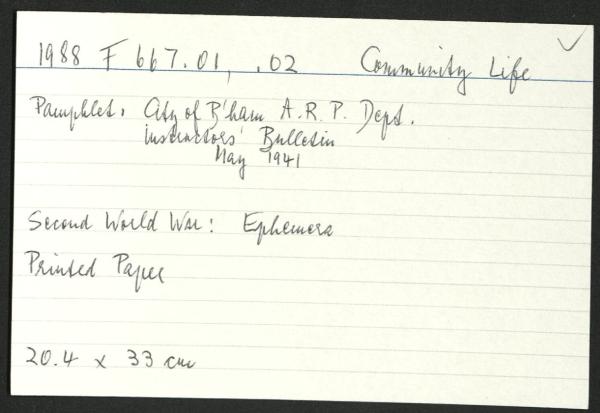 1988 F 667.01, .02 Community Life
Pamphlet. City of B'ham A.R.P. Dept.
Instructors' Bulletin
May 1941
Second World War: Ephemera
Printed Paper
20.4 x 33 cm